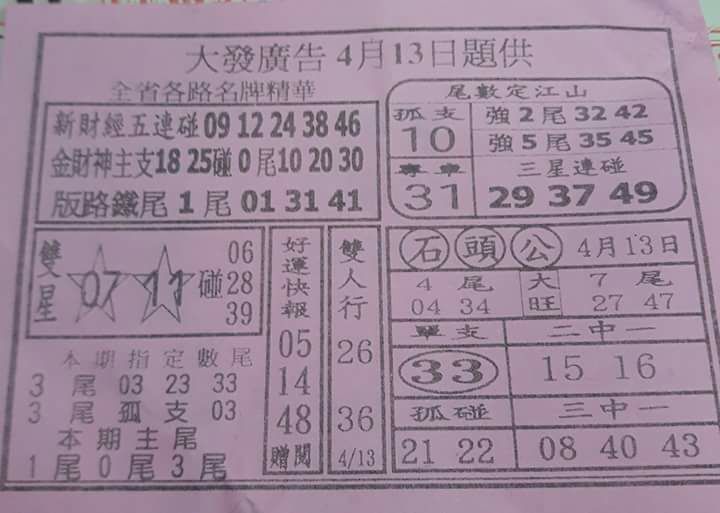 大發廣告4月13日題供
全省各路名牌精華
新財經五連碰09 12 24 38 46
金財神主支18 25碰 0 尾10 20 30
版路鐵尾 1 尾 01 31 41
尾數定江山
孤支
10
強 2 尾 32 42
強 5 尾 35 45
專車
31
三星連碰
29 37 49
雙星
07 11
碰
06
28
39
本期指定數尾
3 尾 03 23 33
3 尾 孤 支 03
本期主尾
1尾0尾3尾
好運快報
05
14
48
贈閱
雙人行
26
36
4/13
石頭公 4月13日
4 尾
04 34
大旺
7 尾
27 47
單支
33
二中一
15 16
孤碰
21 22
三中一
08 40 43